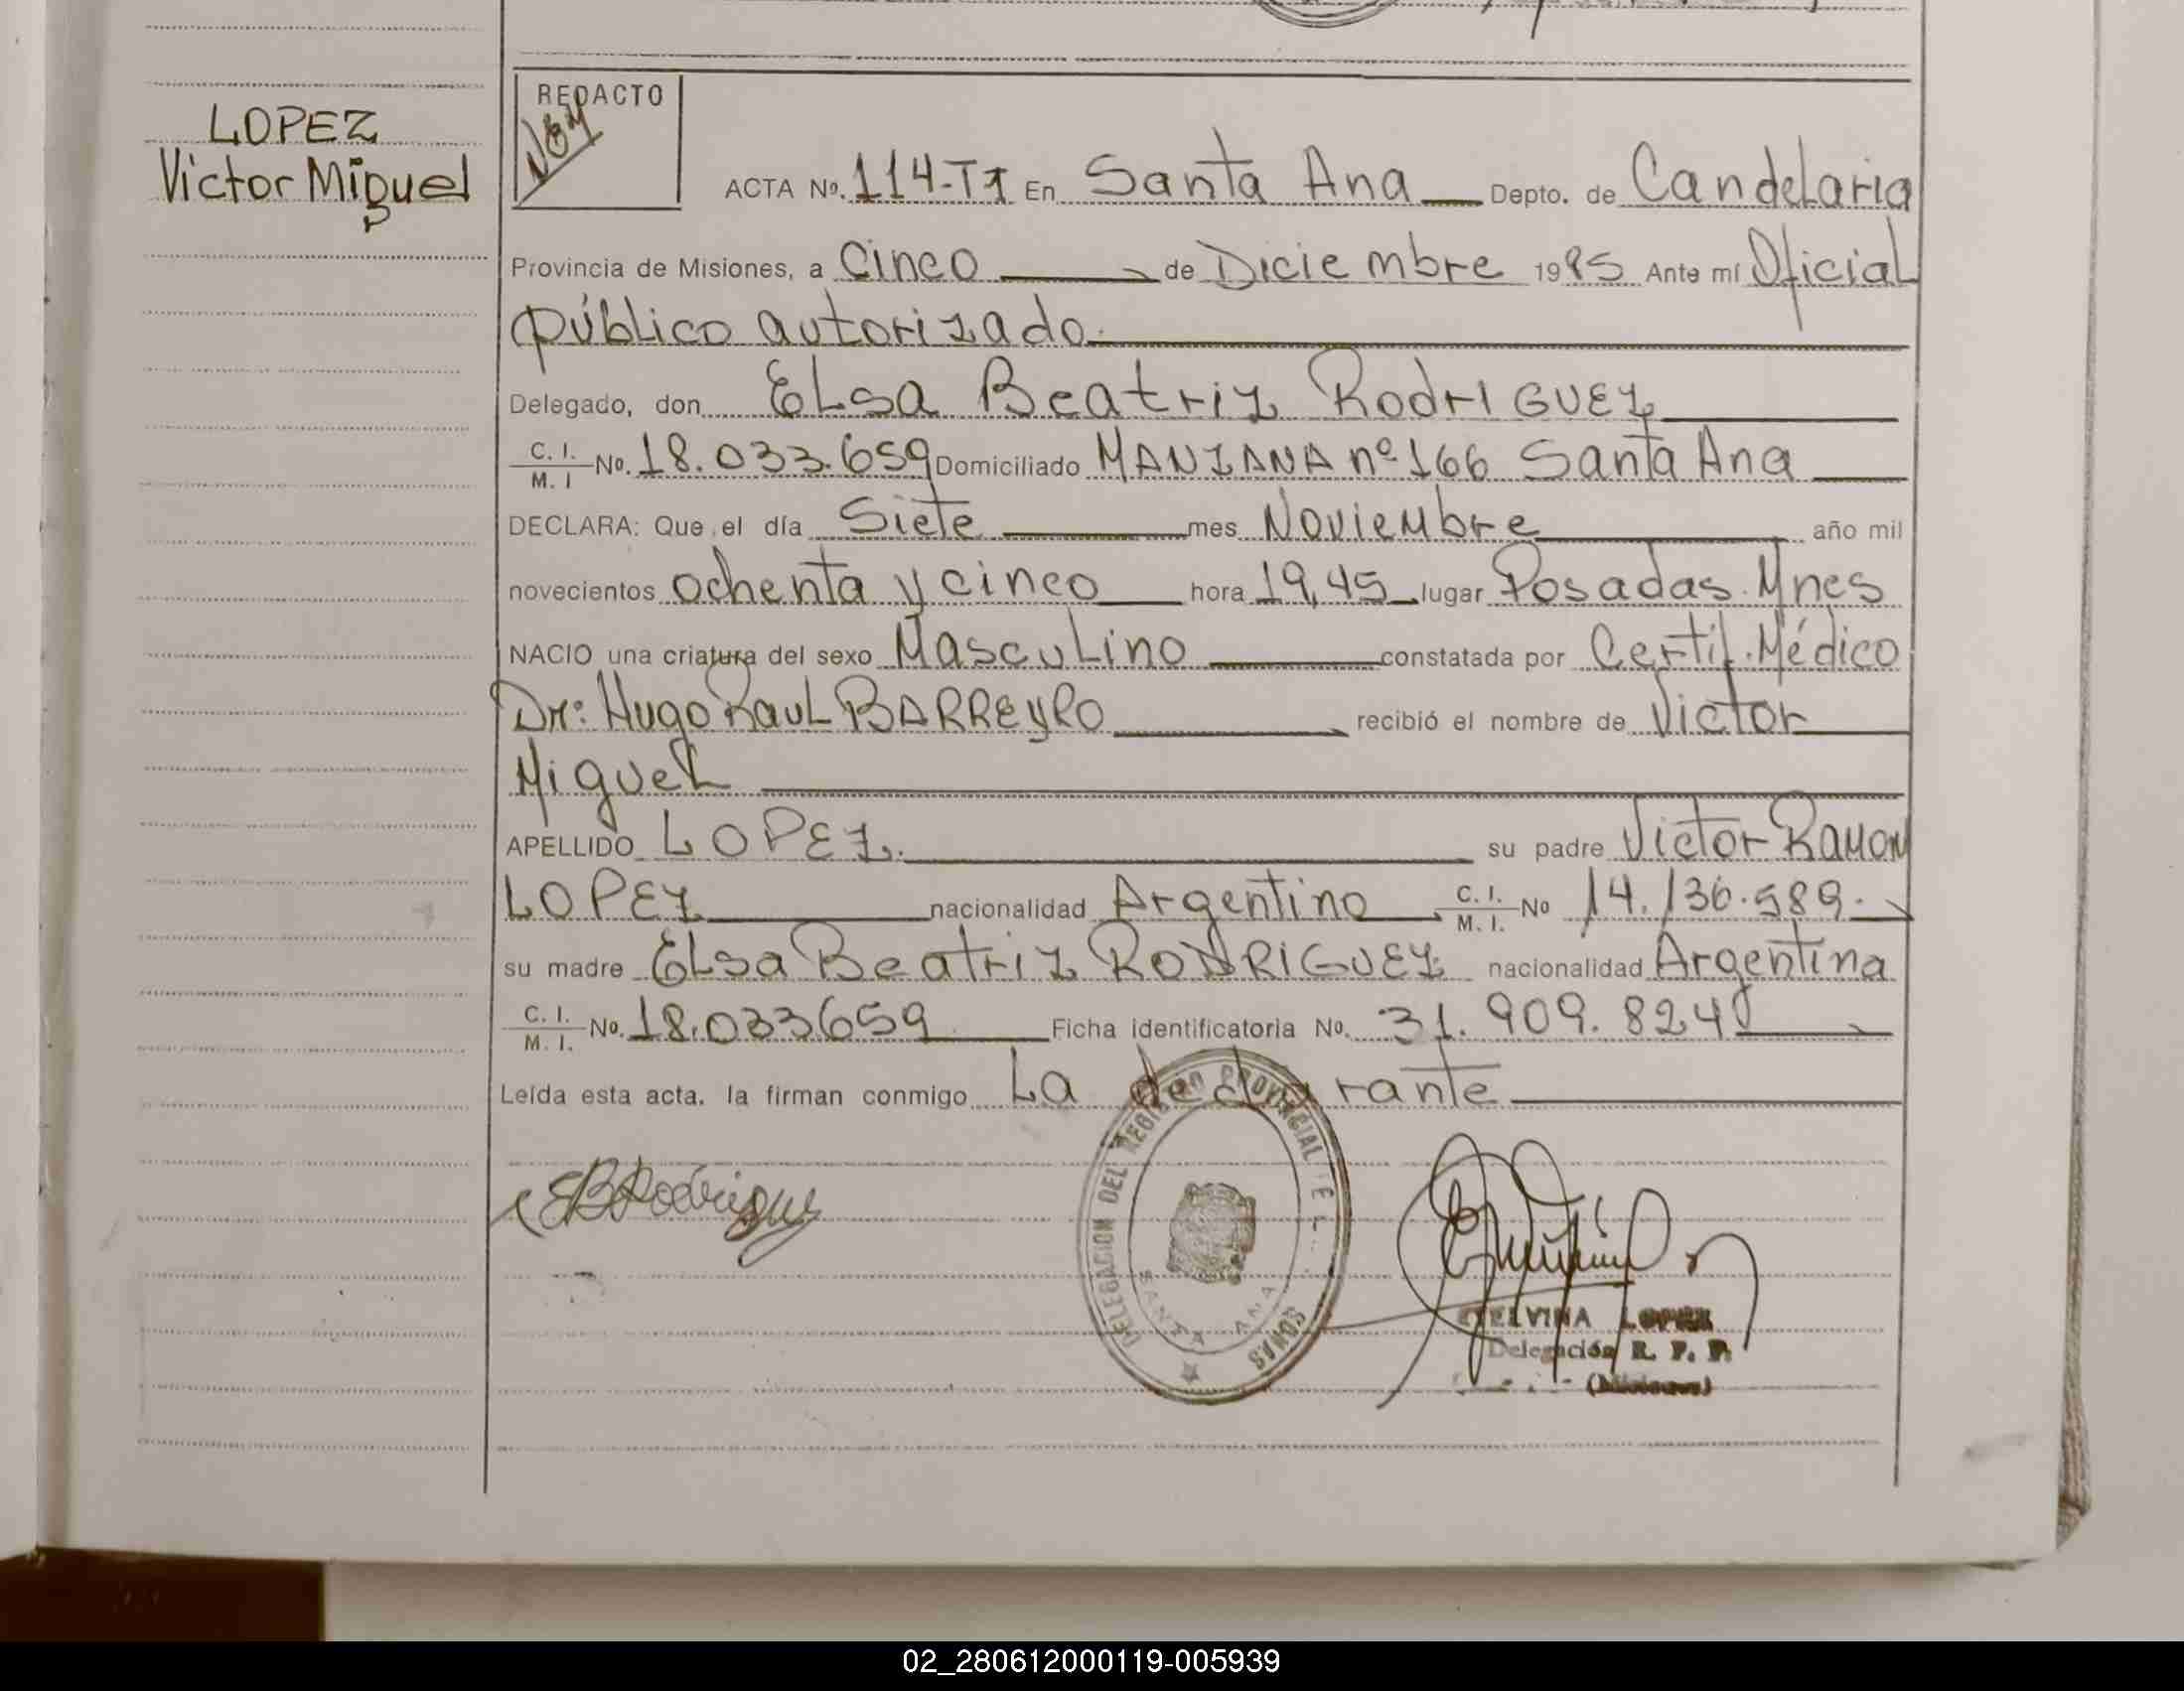 LOPEZ
Victor Miguel
REDACTO
ACTA Nº. 114-T1 En Santa Ana Depto. de Candelaria
Provincia de Misiones, a Cinco de Diciembre 1985 Ante mí Oficial
público autorizado.
Delegado, don Elsa Beatriz Rodriguez
C. I. M. I No. 18.033.659 Domiciliado MANZANA nº 166 Santa Ana
DECLARA: Que el día Siete mes Noviembre año mil
novecientos ochenta y cinco hora 19,45 lugar Posadas. Mnes
NACIO una criatura del sexo Masculino constatada por Certif. Médico
Dr: Hugo Raul BARREYRO recibió el nombre de Victor
Miguel
APELLIDO LOPEZ. su padre Victor Ramon
LOPEZ nacionalidad Argentino C. I. M. I. No 14.136.589.
su madre Elsa Beatriz RODRIGUEZ nacionalidad Argentina
C. I. M. I. No. 18.033659 Ficha identificatoria No. 31.909.824
Leída esta acta. la firman conmigo La declarante
EBRodriguez
DELEGACION DEL REGISTRO PROVINCIAL DE
SANTA ANA
LOPEZ
Delegación R. P. P.
(Misiones)
02_280612000119-005939